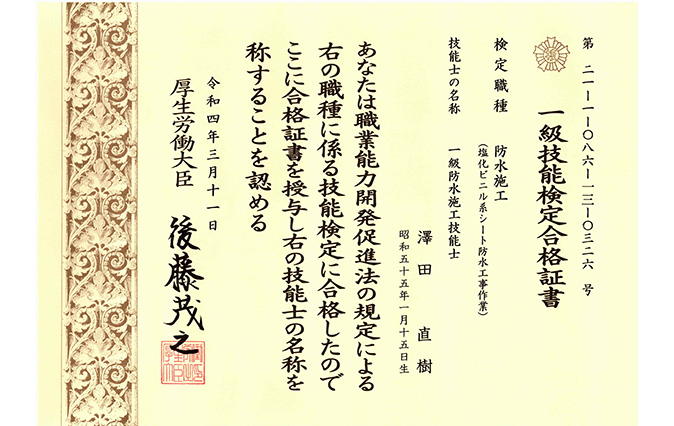 第 二一-一-〇八六-一三-〇三二六 号
一級技能検定合格証書
検定職種 防水施工
(塩化ビニル系シート防水工事作業)
技能士の名称 一級防水施工技能士
澤田 直樹
昭和五十五年一月十五日生
あなたは職業能力開発促進法の規定による
右の職種に係る技能検定に合格したので
ここに合格証書を授与し右の技能士の名称を
称することを認める
令和四年三月十一日
厚生労働大臣 後藤茂之